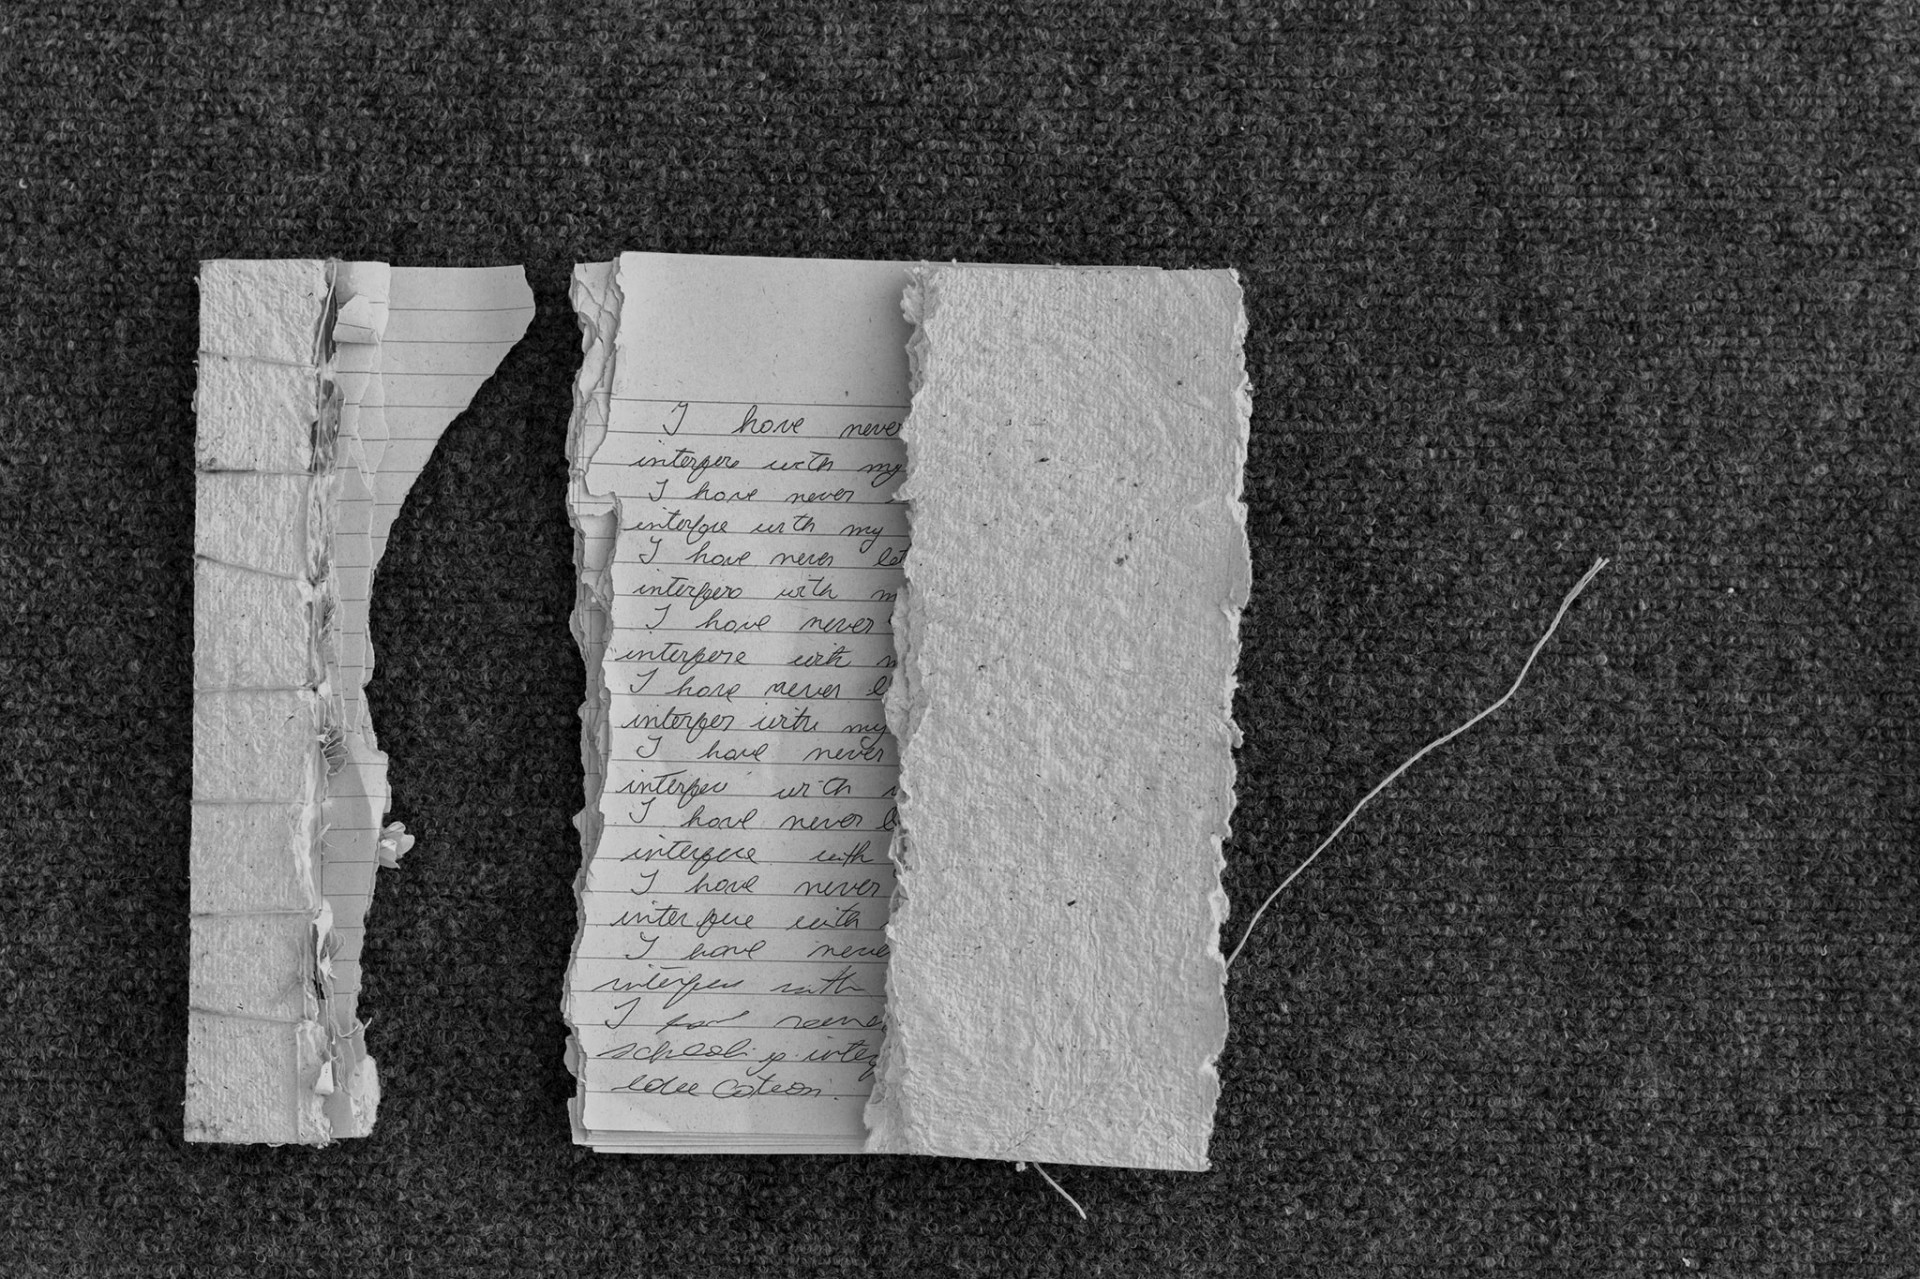 I have never
interfere with my
I have never
interfere with my
I have never let
interfere with m
I have never
interfere with m
I have never l
interfer with my
I have never
interfer with
I have never l
interfere with
I have never
interfere with
I have neve
interfere with
I
school
education.